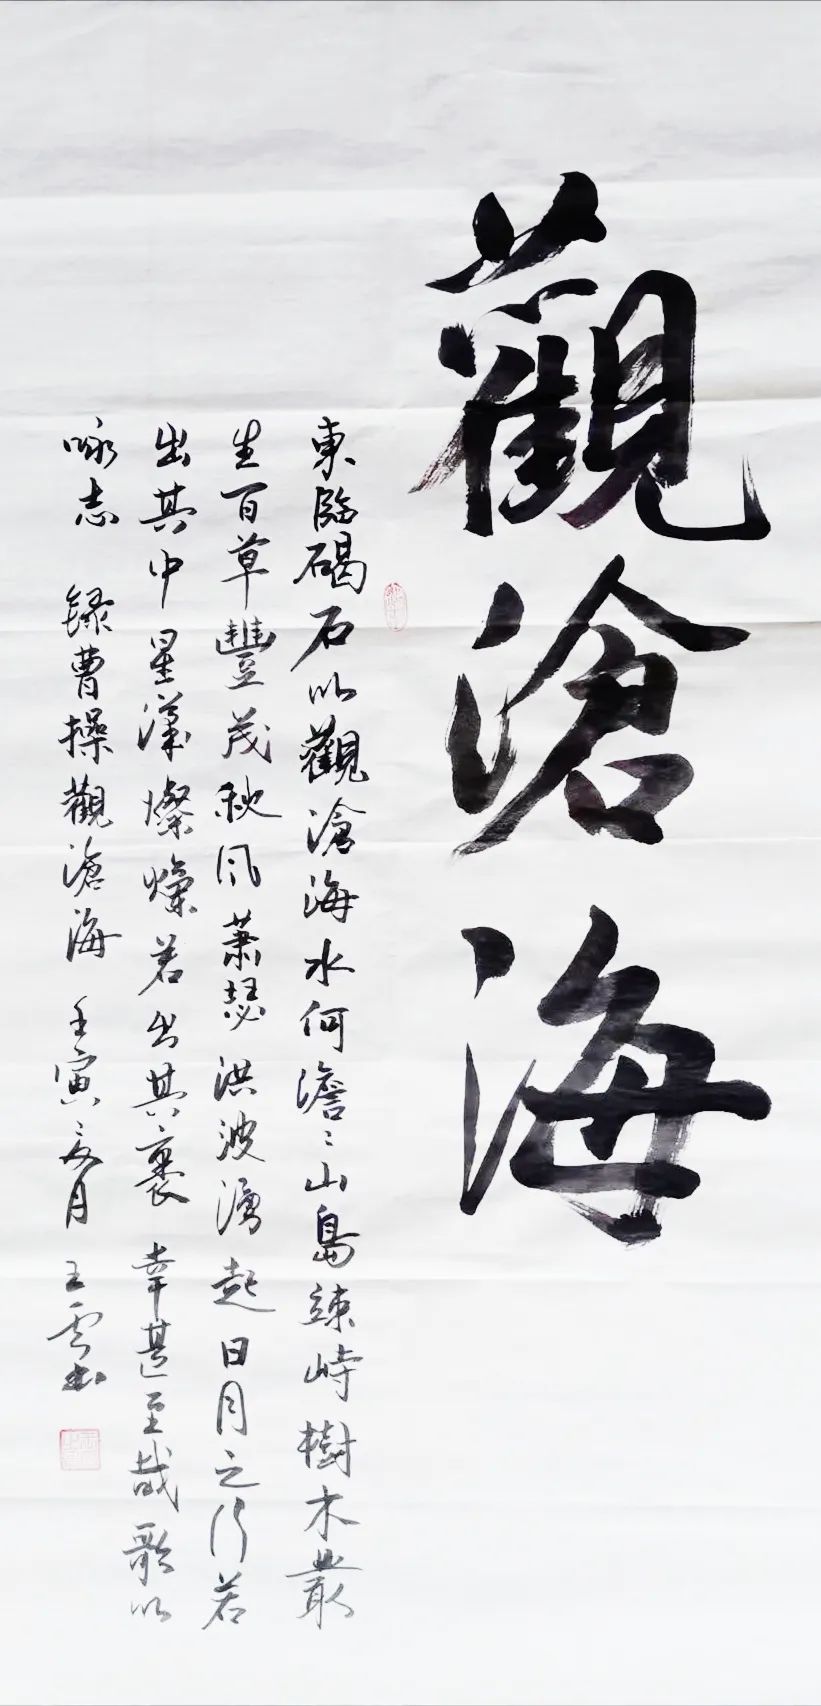 觀滄海
東臨碣石以觀滄海水何澹〻山島竦峙樹木叢
生百草豐茂秋風蕭瑟洪波湧起日月之行若
出其中星漢燦爛若出其裏幸甚至哉歌以
咏志 録曹操觀滄海 壬寅〻夏月 王雲书